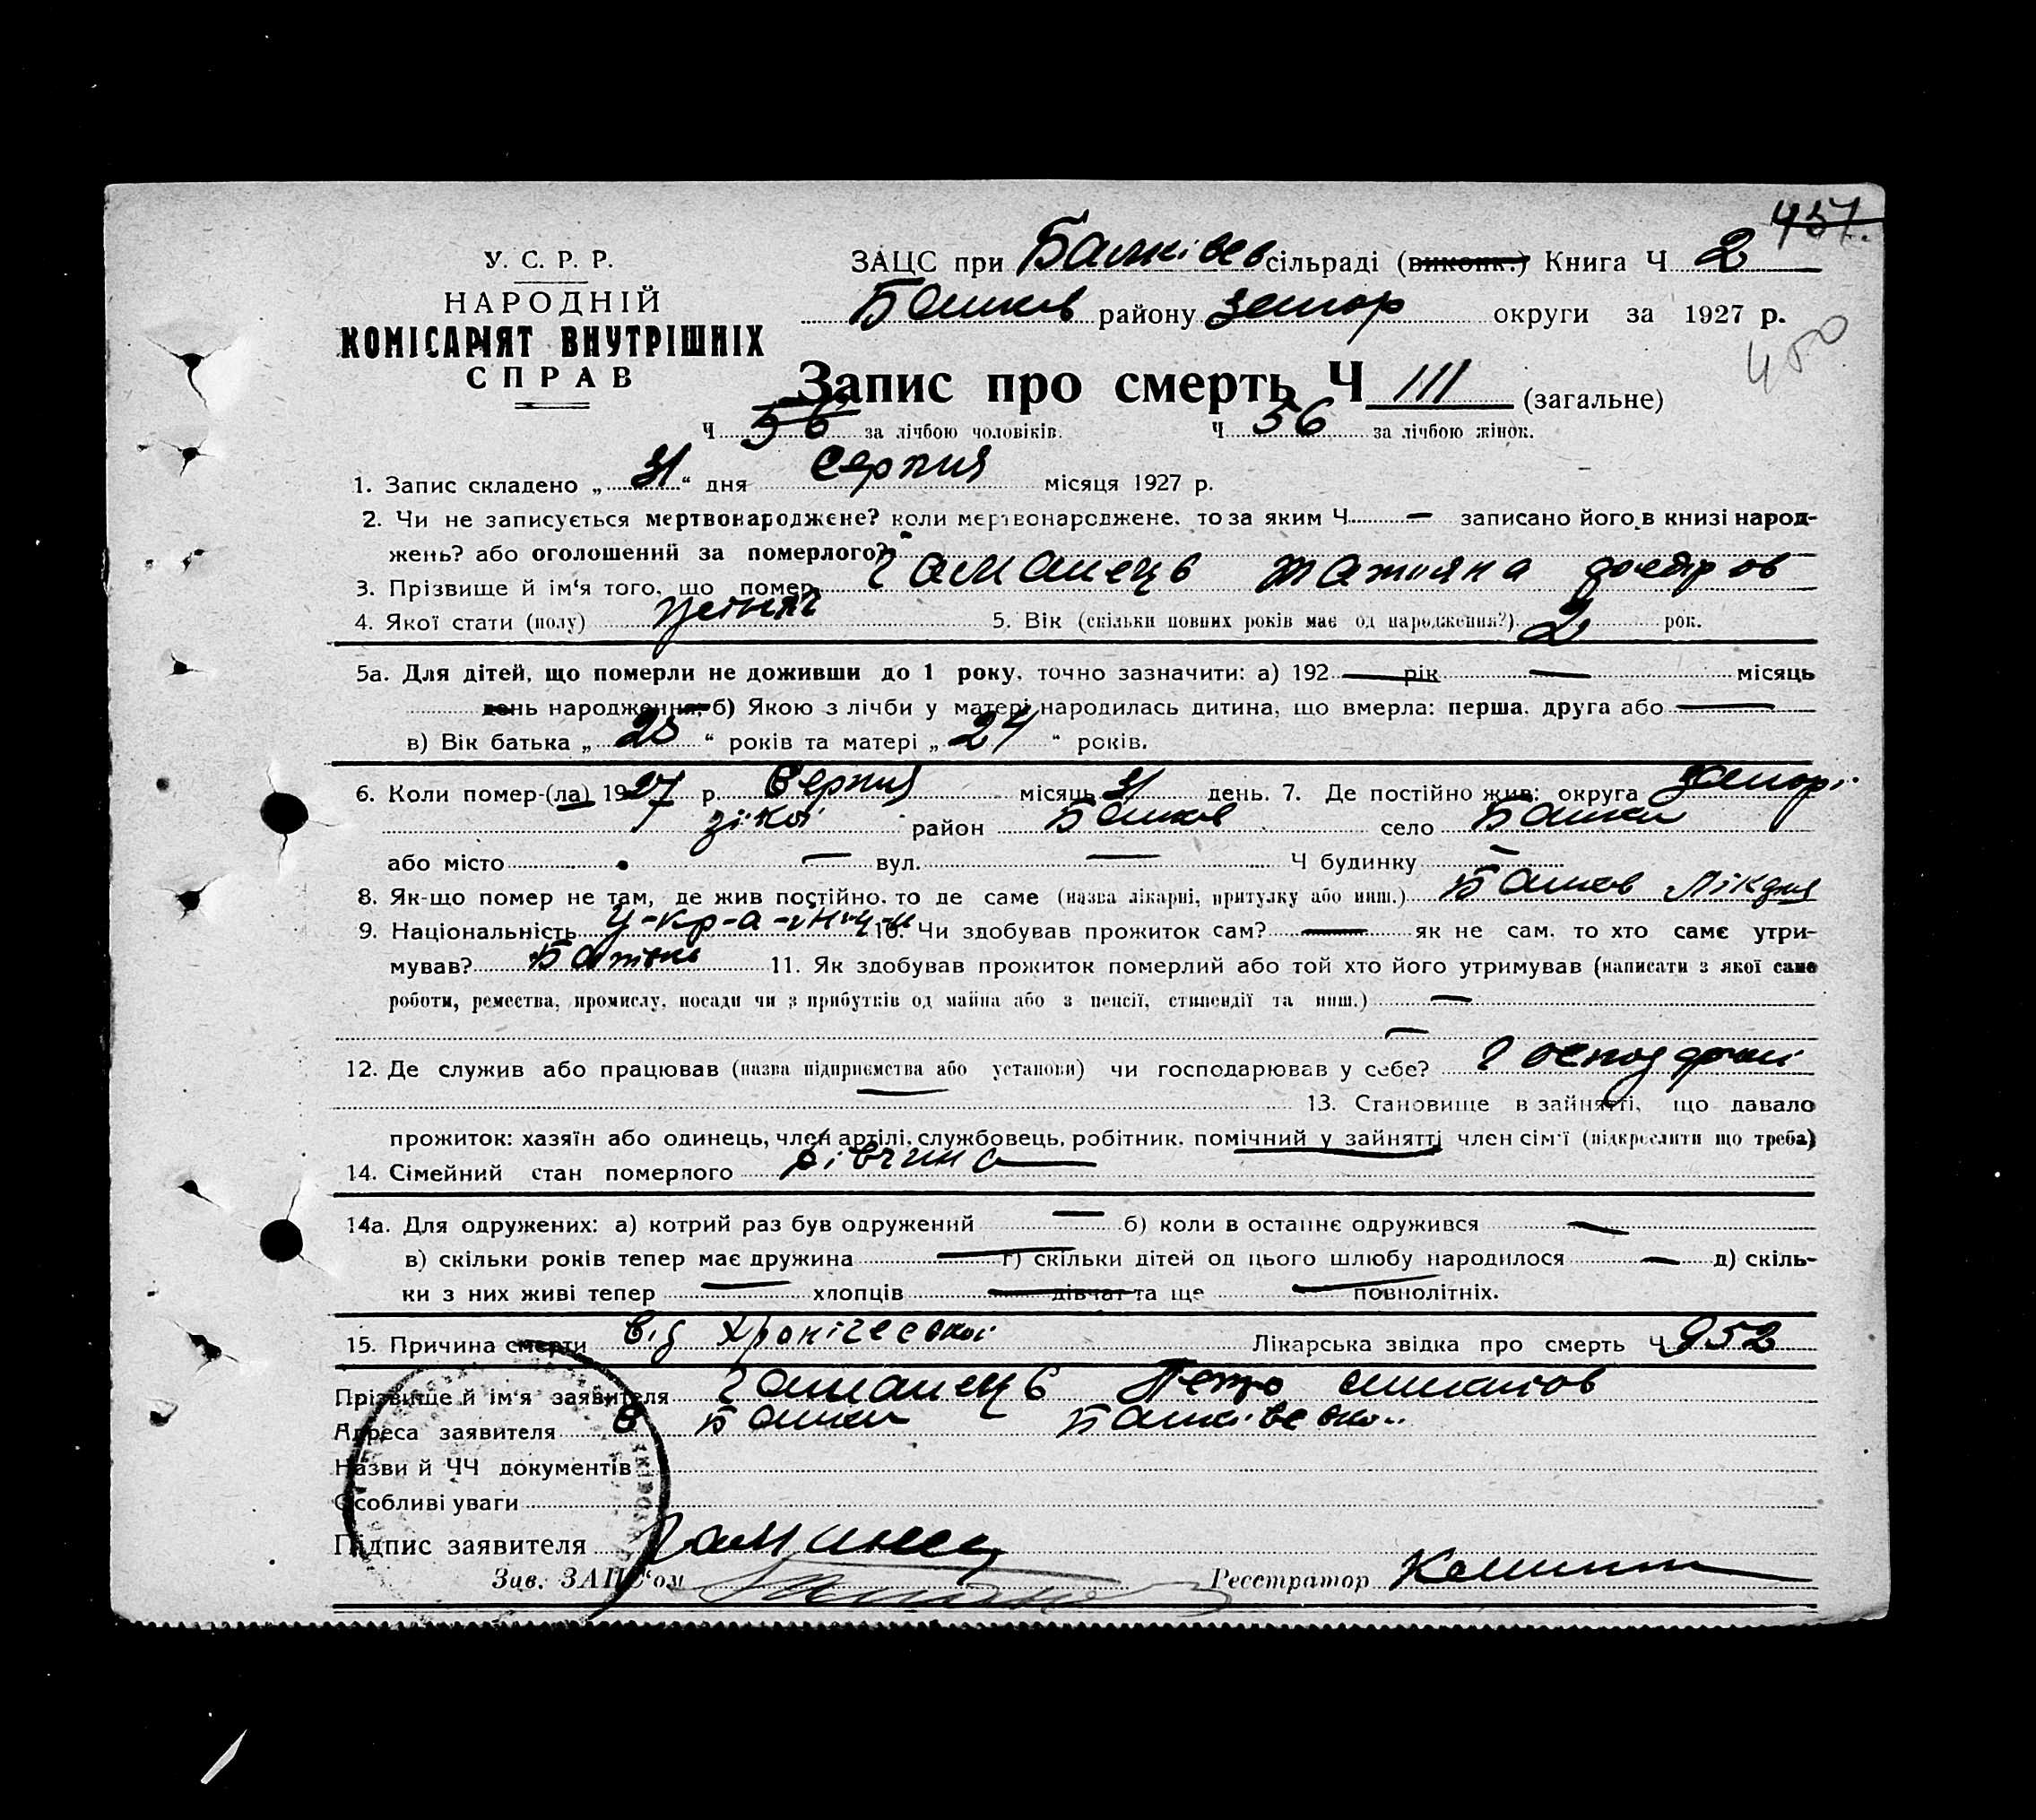 457.
У. С. Р. Р.
НАРОДНІЙ
КОМІСАРІЯТ ВНУТРІШНІХ
СПРАВ
ЗАЦС при сільраді (виконк.) Книга Ч 2
району Запор округи за 1927 р.
450
Запис про смерть Ч 111 (загальне)
Ч 56 за лічбою чоловіків. Ч 56 за лічбою жінок.
1. Запис складено „31“ дня Серпня місяця 1927 р.
2. Чи не записується мертвонароджене? коли мертвонароджене, то за яким Ч — записано його в книзі народ-
жень? або оголошений за померлого?
3. Прізвище й ім‘я того, що помер Гаманець Татияна
4. Якої стати (полу) 5. Вік (скільки повних років має од народження?) 2 рок.
5а. Для дітей, що померли не доживши до 1 року, точно зазначити: а) 192 — рік — місяць
день народження; б) Якою з лічби у матері народилась дитина, що вмерла: перша, друга або —
в) Вік батька „ “ років та матері „24“ років.
6. Коли помер-(ла) 1927 р. Серпня місяць 31 день. 7. Де постійно жив: округа Запорі
зікої район село
або місто — вул. — Ч будинку —
8. Як-що помер не там, де жив постійно, то де саме (назва лікарні, притулку або инш.)
9. Національність 10. Чи здобував прожиток сам? — як не сам, то хто саме утри-
мував? Батько 11. Як здобував прожиток померлий або той хто його утримував (написати з якої саме
роботи, ремества, промислу, посади чи з прибутків од майна або з пенсії, стипендії та инш.) —
—
12. Де служив або працював (назва підприємства або установи) чи господарював у себе?
— 13. Становище в зайнятті, що давало
прожиток: хазяїн або одинець, член артілі, службовець, робітник, помічний у зайнятті член сім‘ї (підкреслити що треба)
14. Сімейний стан померлого дівчина
14а. Для одружених: а) котрий раз був одружений — б) коли в останнє одружився —
в) скільки років тепер має дружина — г) скільки дітей од цього шлюбу народилося — д) скіль-
ки з них живі тепер — хлопців — дівчат та ще — повнолітніх.
15. Причина смерти від Хронічеської Лікарська звідка про смерть Ч 952
Прізвище й ім‘я заявителя Гаманець Петро
Адреса заявителя
Назви й ЧЧ документів
Особливі уваги
Підпис заявителя Гаманец
Зав. ЗАЦС‘ом Реєстратор